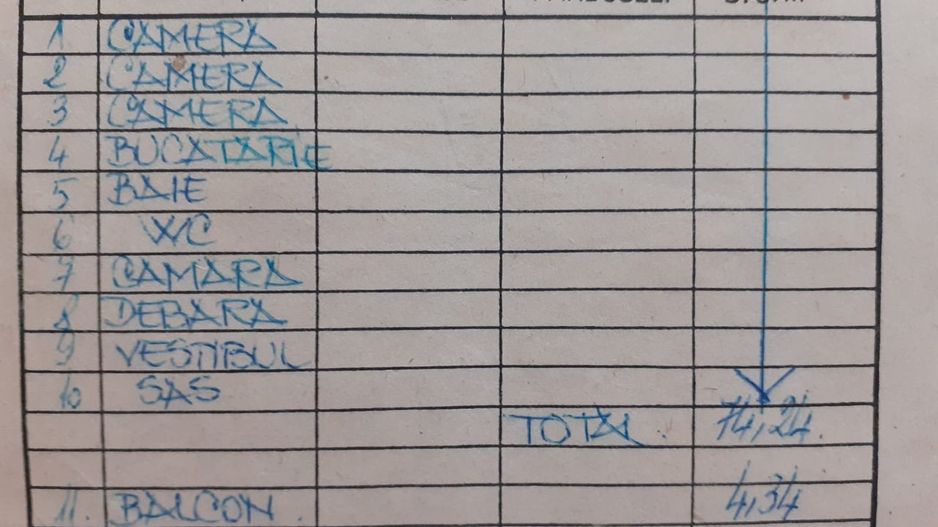 1. CAMERA
2 CAMERA
3 CAMERA
4 BUCATARIE
5 BAIE
6 WC
7 CAMARA
8 DEBARA
9 VESTIBUL
10 SAS
TOTAL. 74,24.
11. BALCON. 4,34